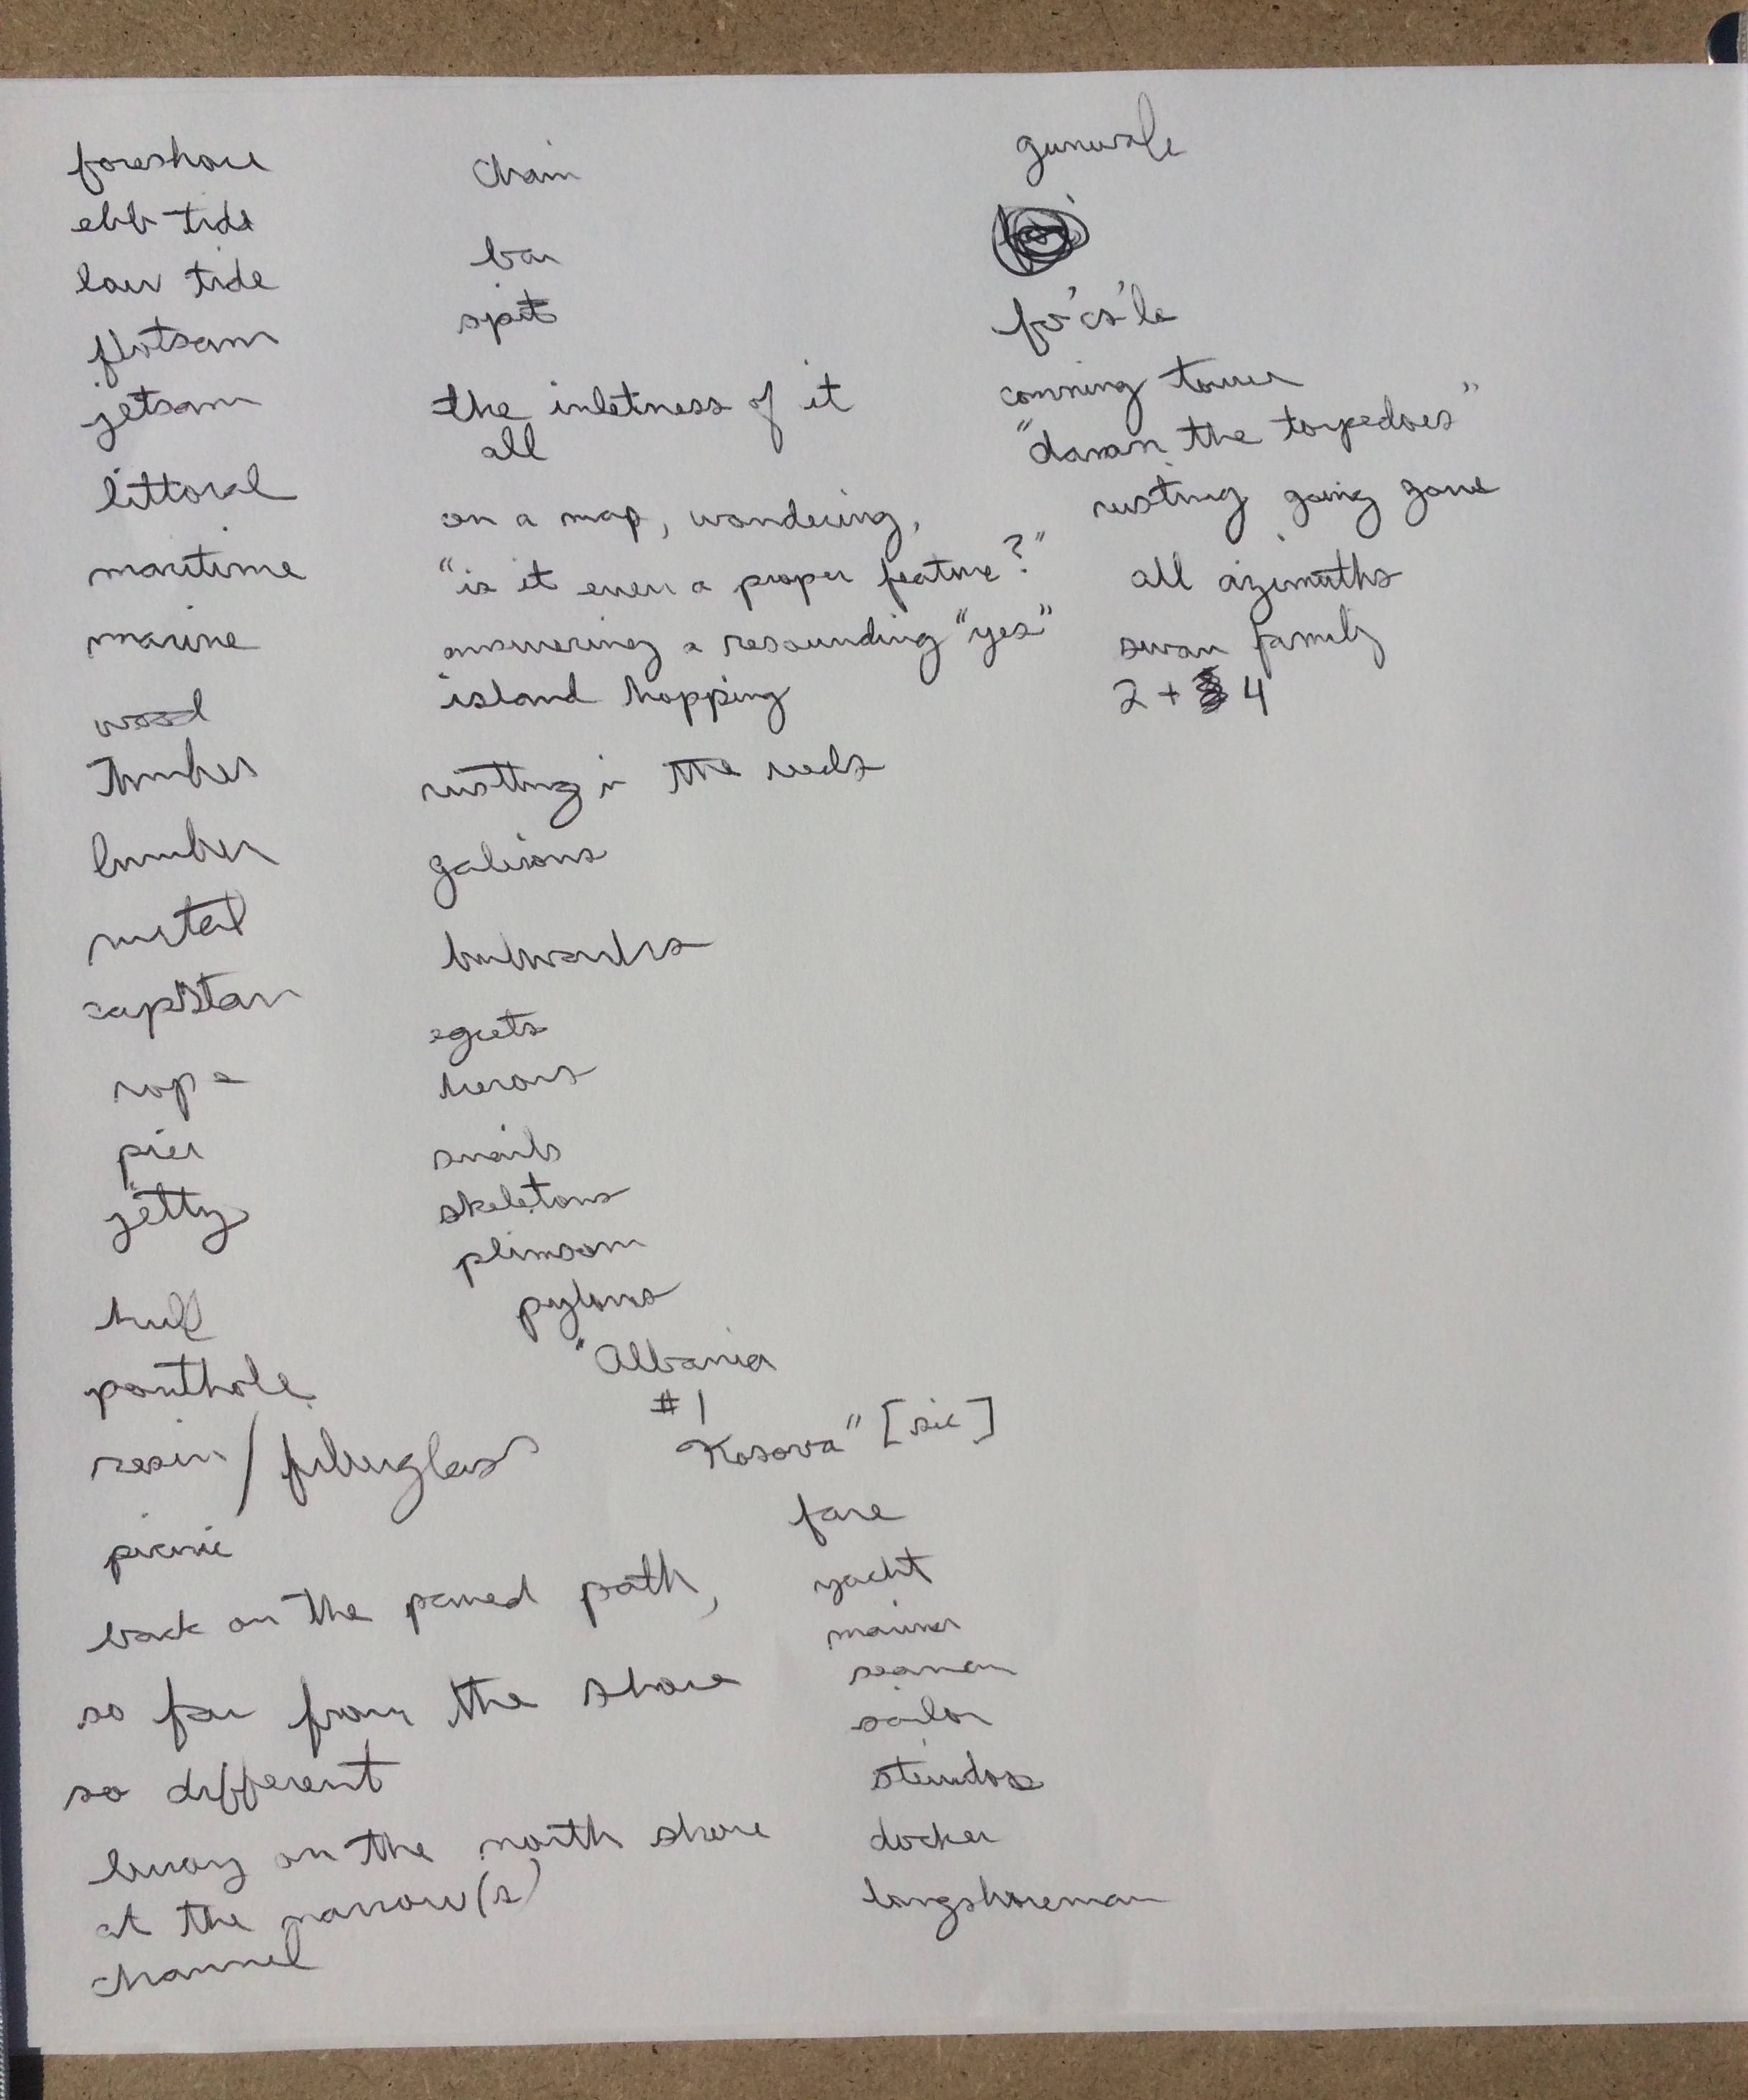 foreshore
ebb tide
low tide
flotsam
jetsam
littoral
maritime
marine
wood
timber
lumber
metal
capstan
rope
pier
jetty
hull
porthole
resin / fiberglass
picnic
back on the paved path,
so far from the shore
so different
luxury on the north shore
at the narrow(s)
channel
chain
bar
spit
the inletness of it
all
on a map, wondering,
"is it even a proper feature?"
answering a resounding "yes"
island hopping
rusting in the reeds
galleons
bulwarks
egrets
herons
snails
skeletons
plimsom
pylons
"Albania
#1
Kosova" [sic]
fare
yacht
mariner
seaman
sailor
docker
longshoreman
gunwale
fo'cs'le
conning tower
"damn the torpedoes"
rusting going gone
all azimuths
swan family
2 + 4